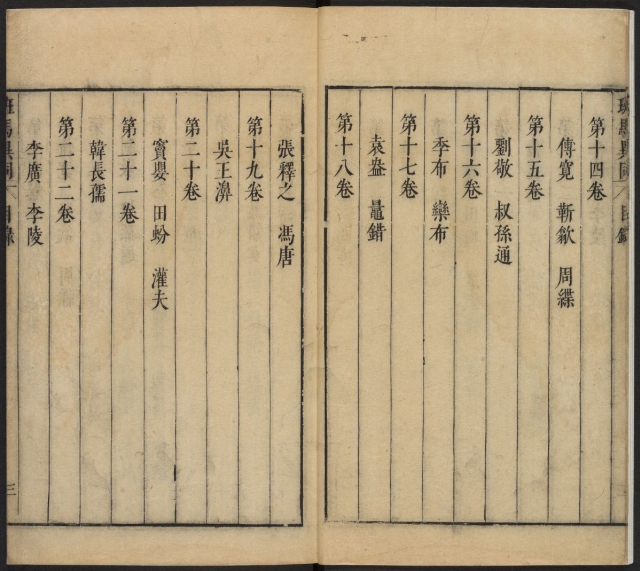 班馬異同 目錄
第十四卷
傅寬 靳歙 周緤
第十五卷
劉敬 叔孫通
第十六卷
季布 欒布
第十七卷
袁盎 鼂錯
第十八卷
張釋之 馮唐
第十九卷
吳王濞
第二十卷
竇嬰 田蚡 灌夫
第二十一卷
韓長孺
第二十二卷
李廣 李陵
班馬異同 目錄 三